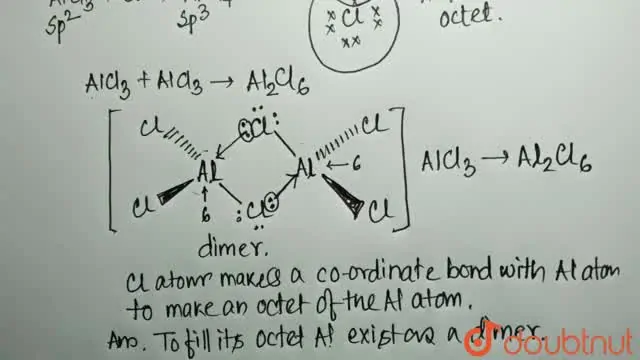 sp² sp³ Cl octet.
AlCl₃ + AlCl₃ → Al₂Cl₆
Cl :Cl: Cl
Al Al ← 6 AlCl₃ → Al₂Cl₆
Cl 6 :Cl: Cl
dimer.
Cl atoms makes a co-ordinate bond with Al atom
to make an octet of the Al atom.
Ans. To fill its octet Al exist as a dimer.
doubtnut